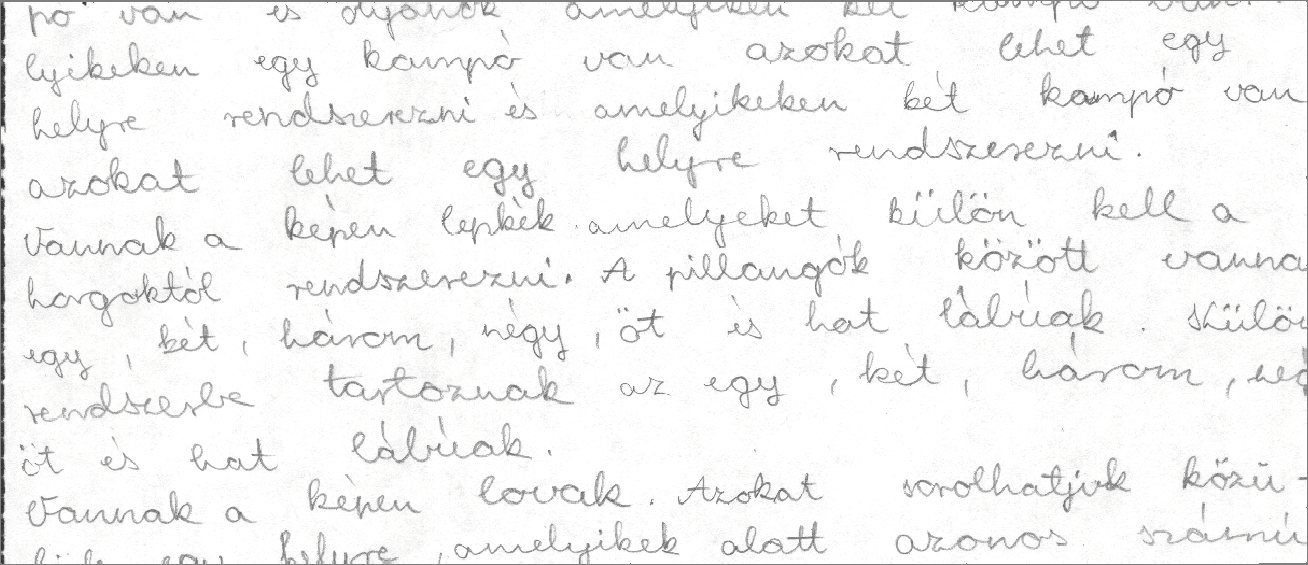 pó van és olyanok amelyiken két kampó van.
lyikeken egy kampó van azokat lehet egy
helyre rendszerezni és amelyikeken két kampó van
azokat lehet egy helyre rendszerezni.
Vannak a képen lepkék amelyeket külön kell a
horgoktól rendszerezni. A pillangók között vanna
egy, két, három, négy, öt és hat lábúak. Külön
rendszerbe tartoznak az egy, két, három, nég
öt és hat lábúak.
Vannak a képen lovak. Azokat sorolhatjuk közü-
egy helyre, amelyikek alatt azonos számú